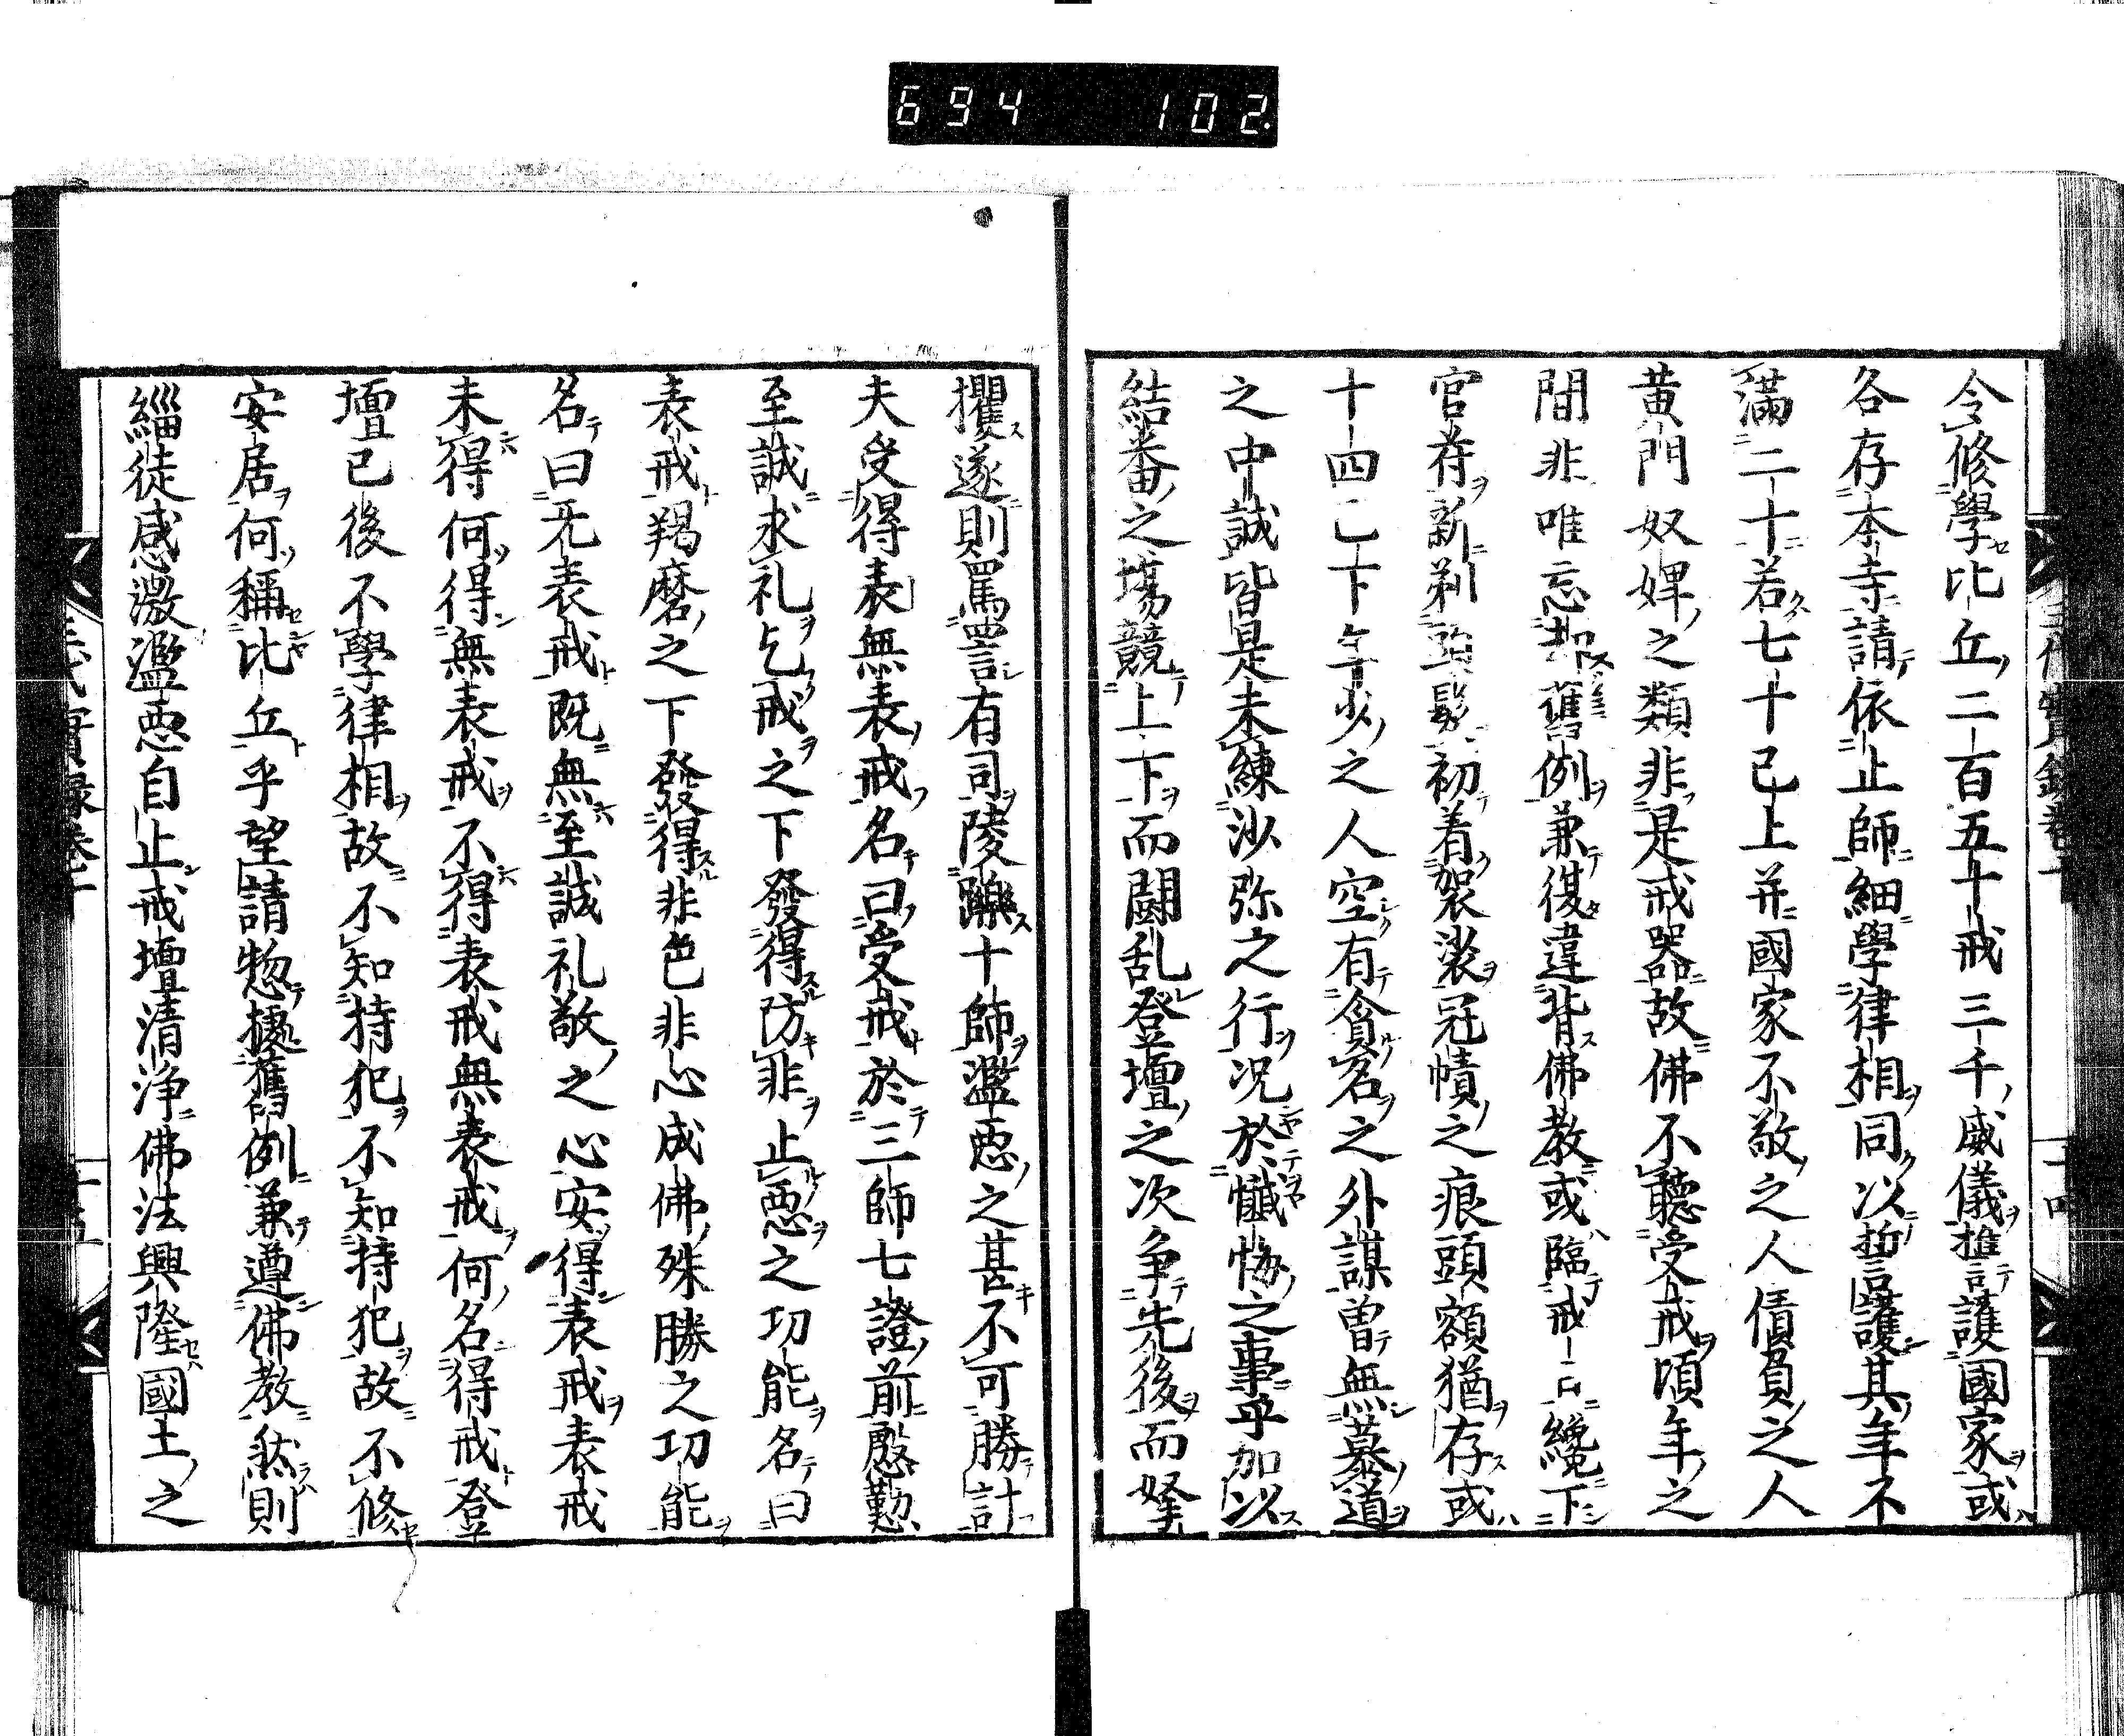 694 102
令修學比丘二百五十戒三千威儀推護國家或
各存本寺請依止師細學律相同以誓護其年不
滿二十若七十已上并國家不敬之人債負之人
黄門奴婢之類非是戒器故佛不聽受戒頃年之
間非唯忘却舊例兼復違背佛教或臨戒日纔下
官苻新剃頭髮初着袈裟冠幘之痕頭額猶存或
十四已下年少之人空有貪名之外謀曽無慕道
之中誠皆是未練沙弥之行况於懺悔之事乎加以
結番之場競上下而闘乱登壇之次争先後而拏
攫遂則罵詈有司陵轢十師濫惡之甚不可勝計
夫受得表無表戒名曰受戒於三師七證前慇懃
至誠求礼乞戒之下發得防非止惡之功能名曰
表戒羯磨之下發得非色非心成佛殊勝之功能
名曰无表戒既無至誠礼敬之心安得表戒表戒
未得何得無表戒不得表戒無表戒何名得戒登
壇已後不學律相故不知持犯不知持犯故不修
安居何稱比丘乎望請惣據舊例兼遵佛教然則
緇徒感激濫惡自止戒壇清浄佛法興隆國土之